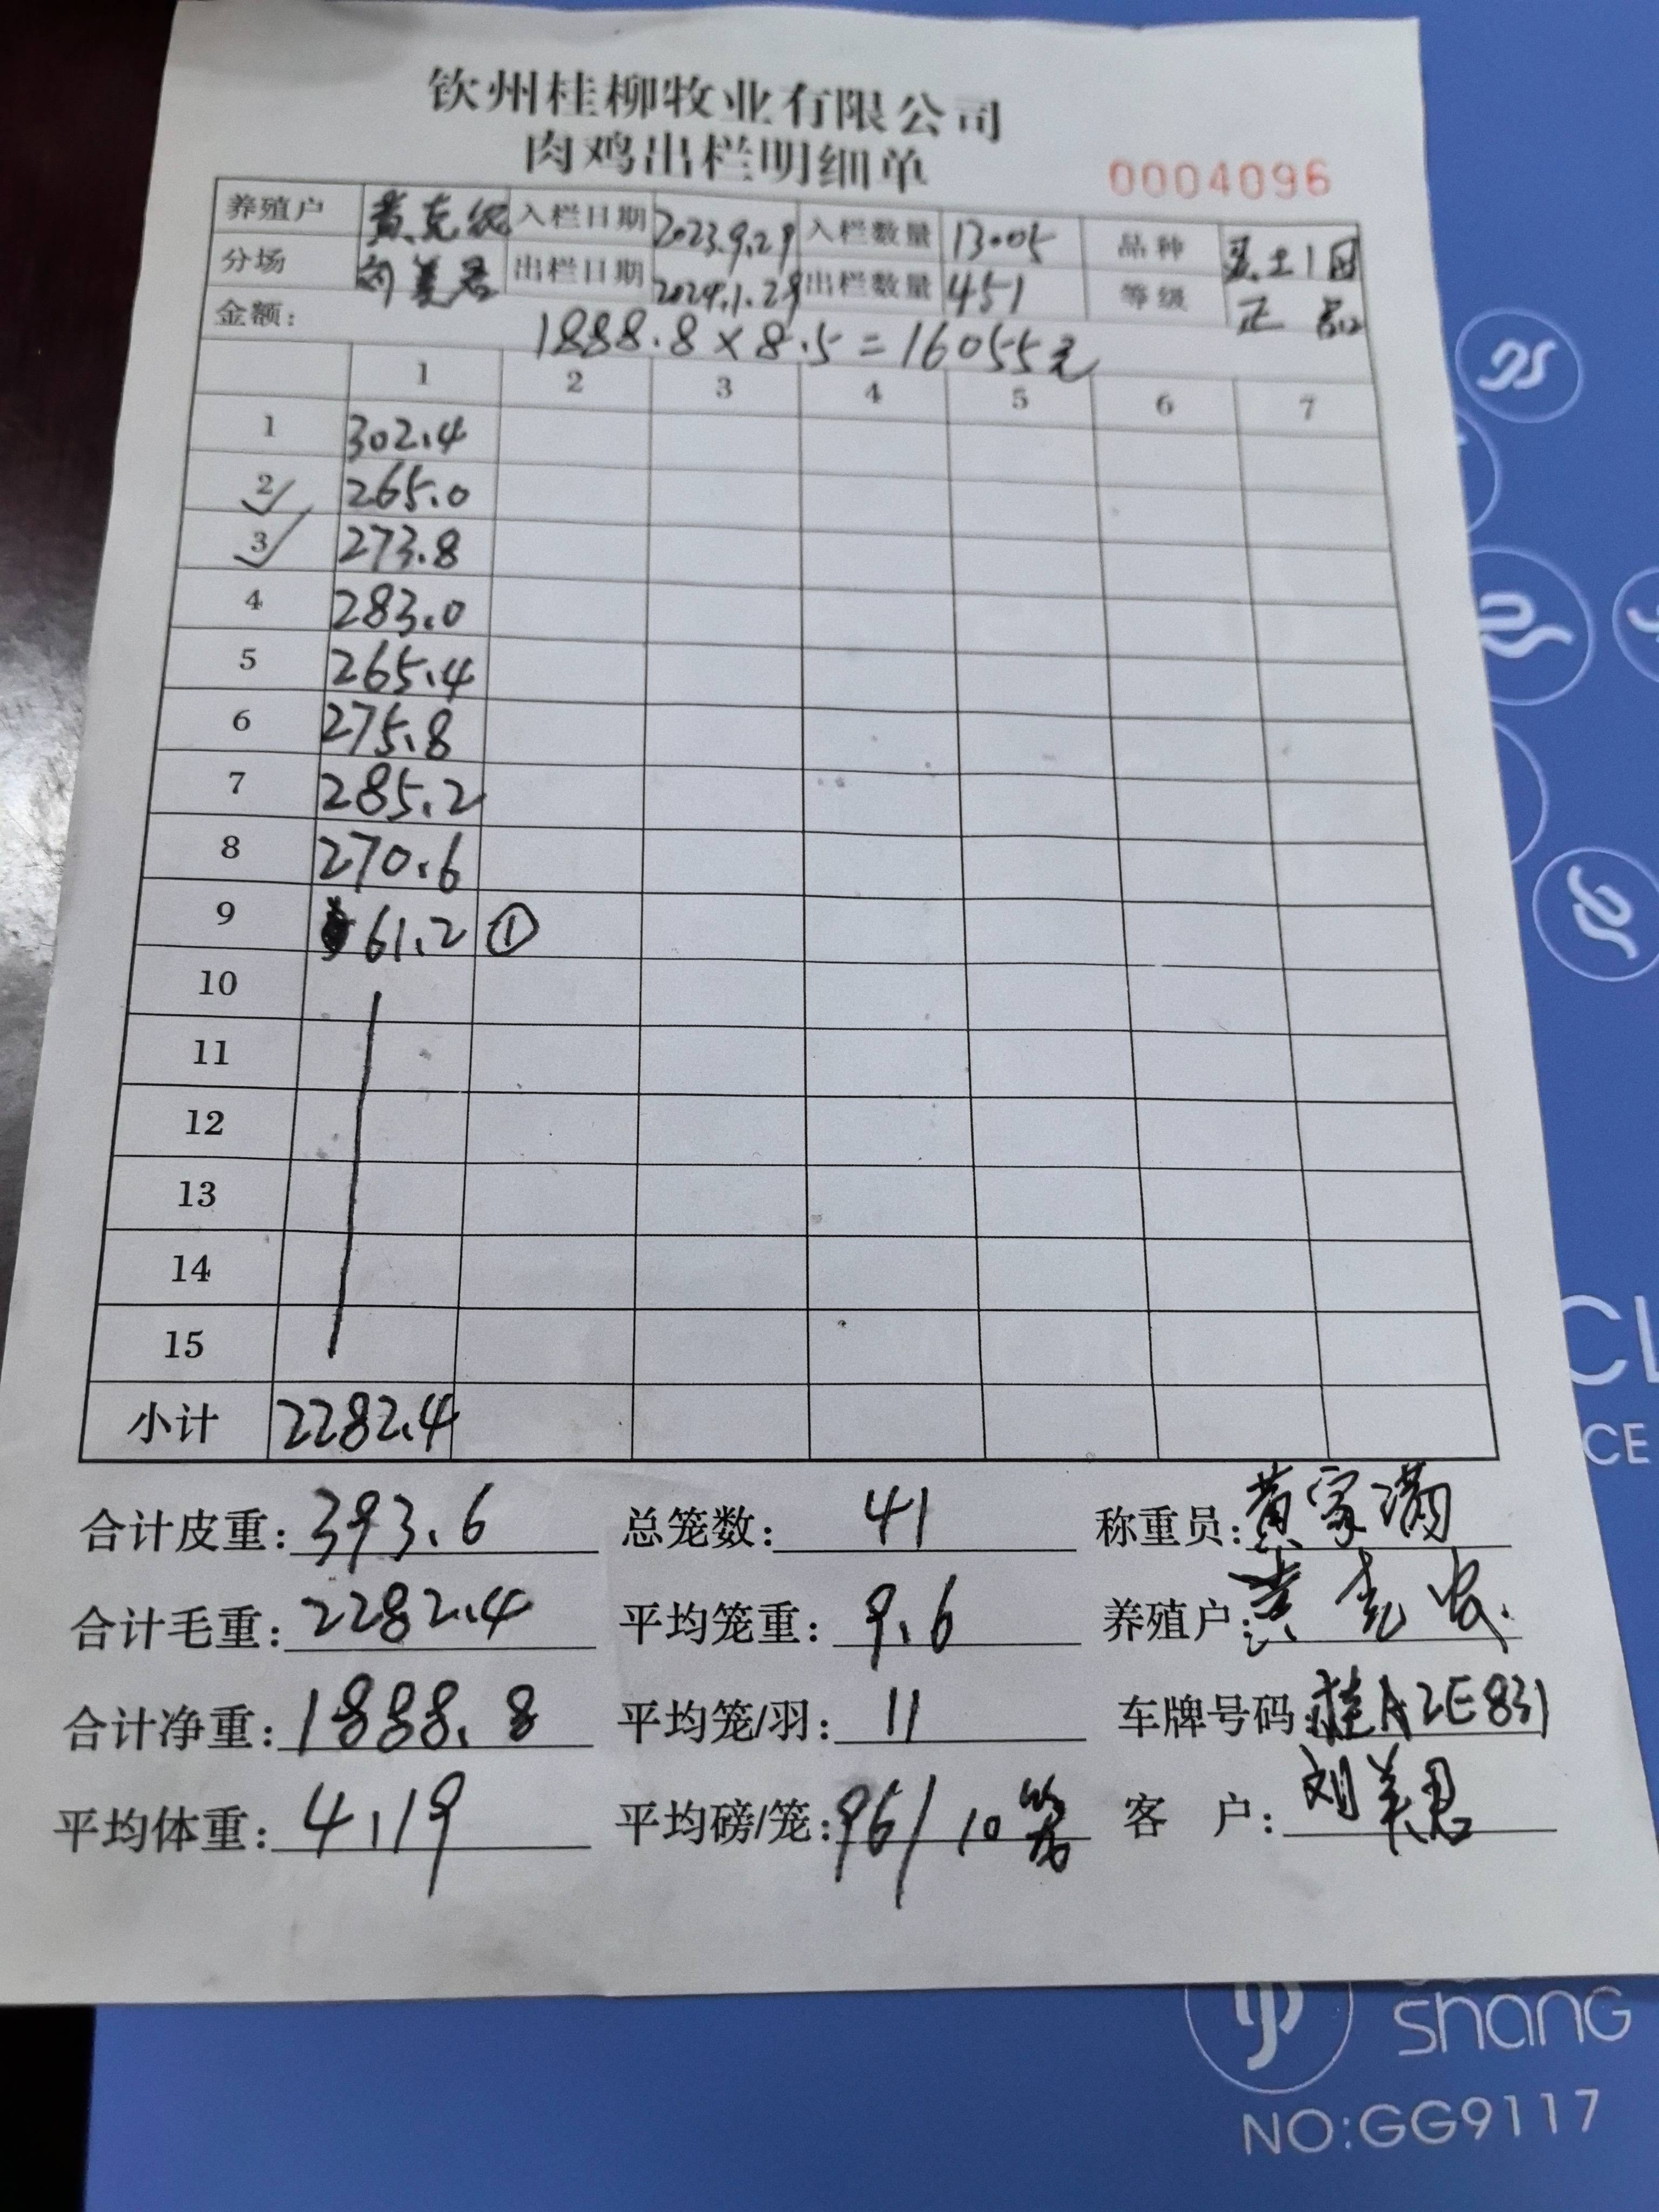 钦州桂柳牧业有限公司
肉鸡出栏明细单
0004096
养殖户 黄克 入栏日期 2023.9.29 入栏数量 13005 品种 土1
分场 刘美君 出栏日期 2024.1.29 出栏数量 451 等级 正品
金额: 1888.8×8.5=16055元
1 2 3 4 5 6 7
1 302.4
2 265.0
3 273.8
4 283.0
5 265.4
6 275.8
7 285.2
8 270.6
9 61.2 ①
10
11
12
13
14
15
小计 2282.4
合计皮重: 393.6 总笼数: 41 称重员: 黄家满
合计毛重: 2282.4 平均笼重: 9.6 养殖户: 黄克
合计净重: 1888.8 平均笼/羽: 11 车牌号码: 桂A2E831
平均体重: 4.19 平均磅/笼: 96/10笼 客 户: 刘美君
CL
CE
shanG
NO:GG9117